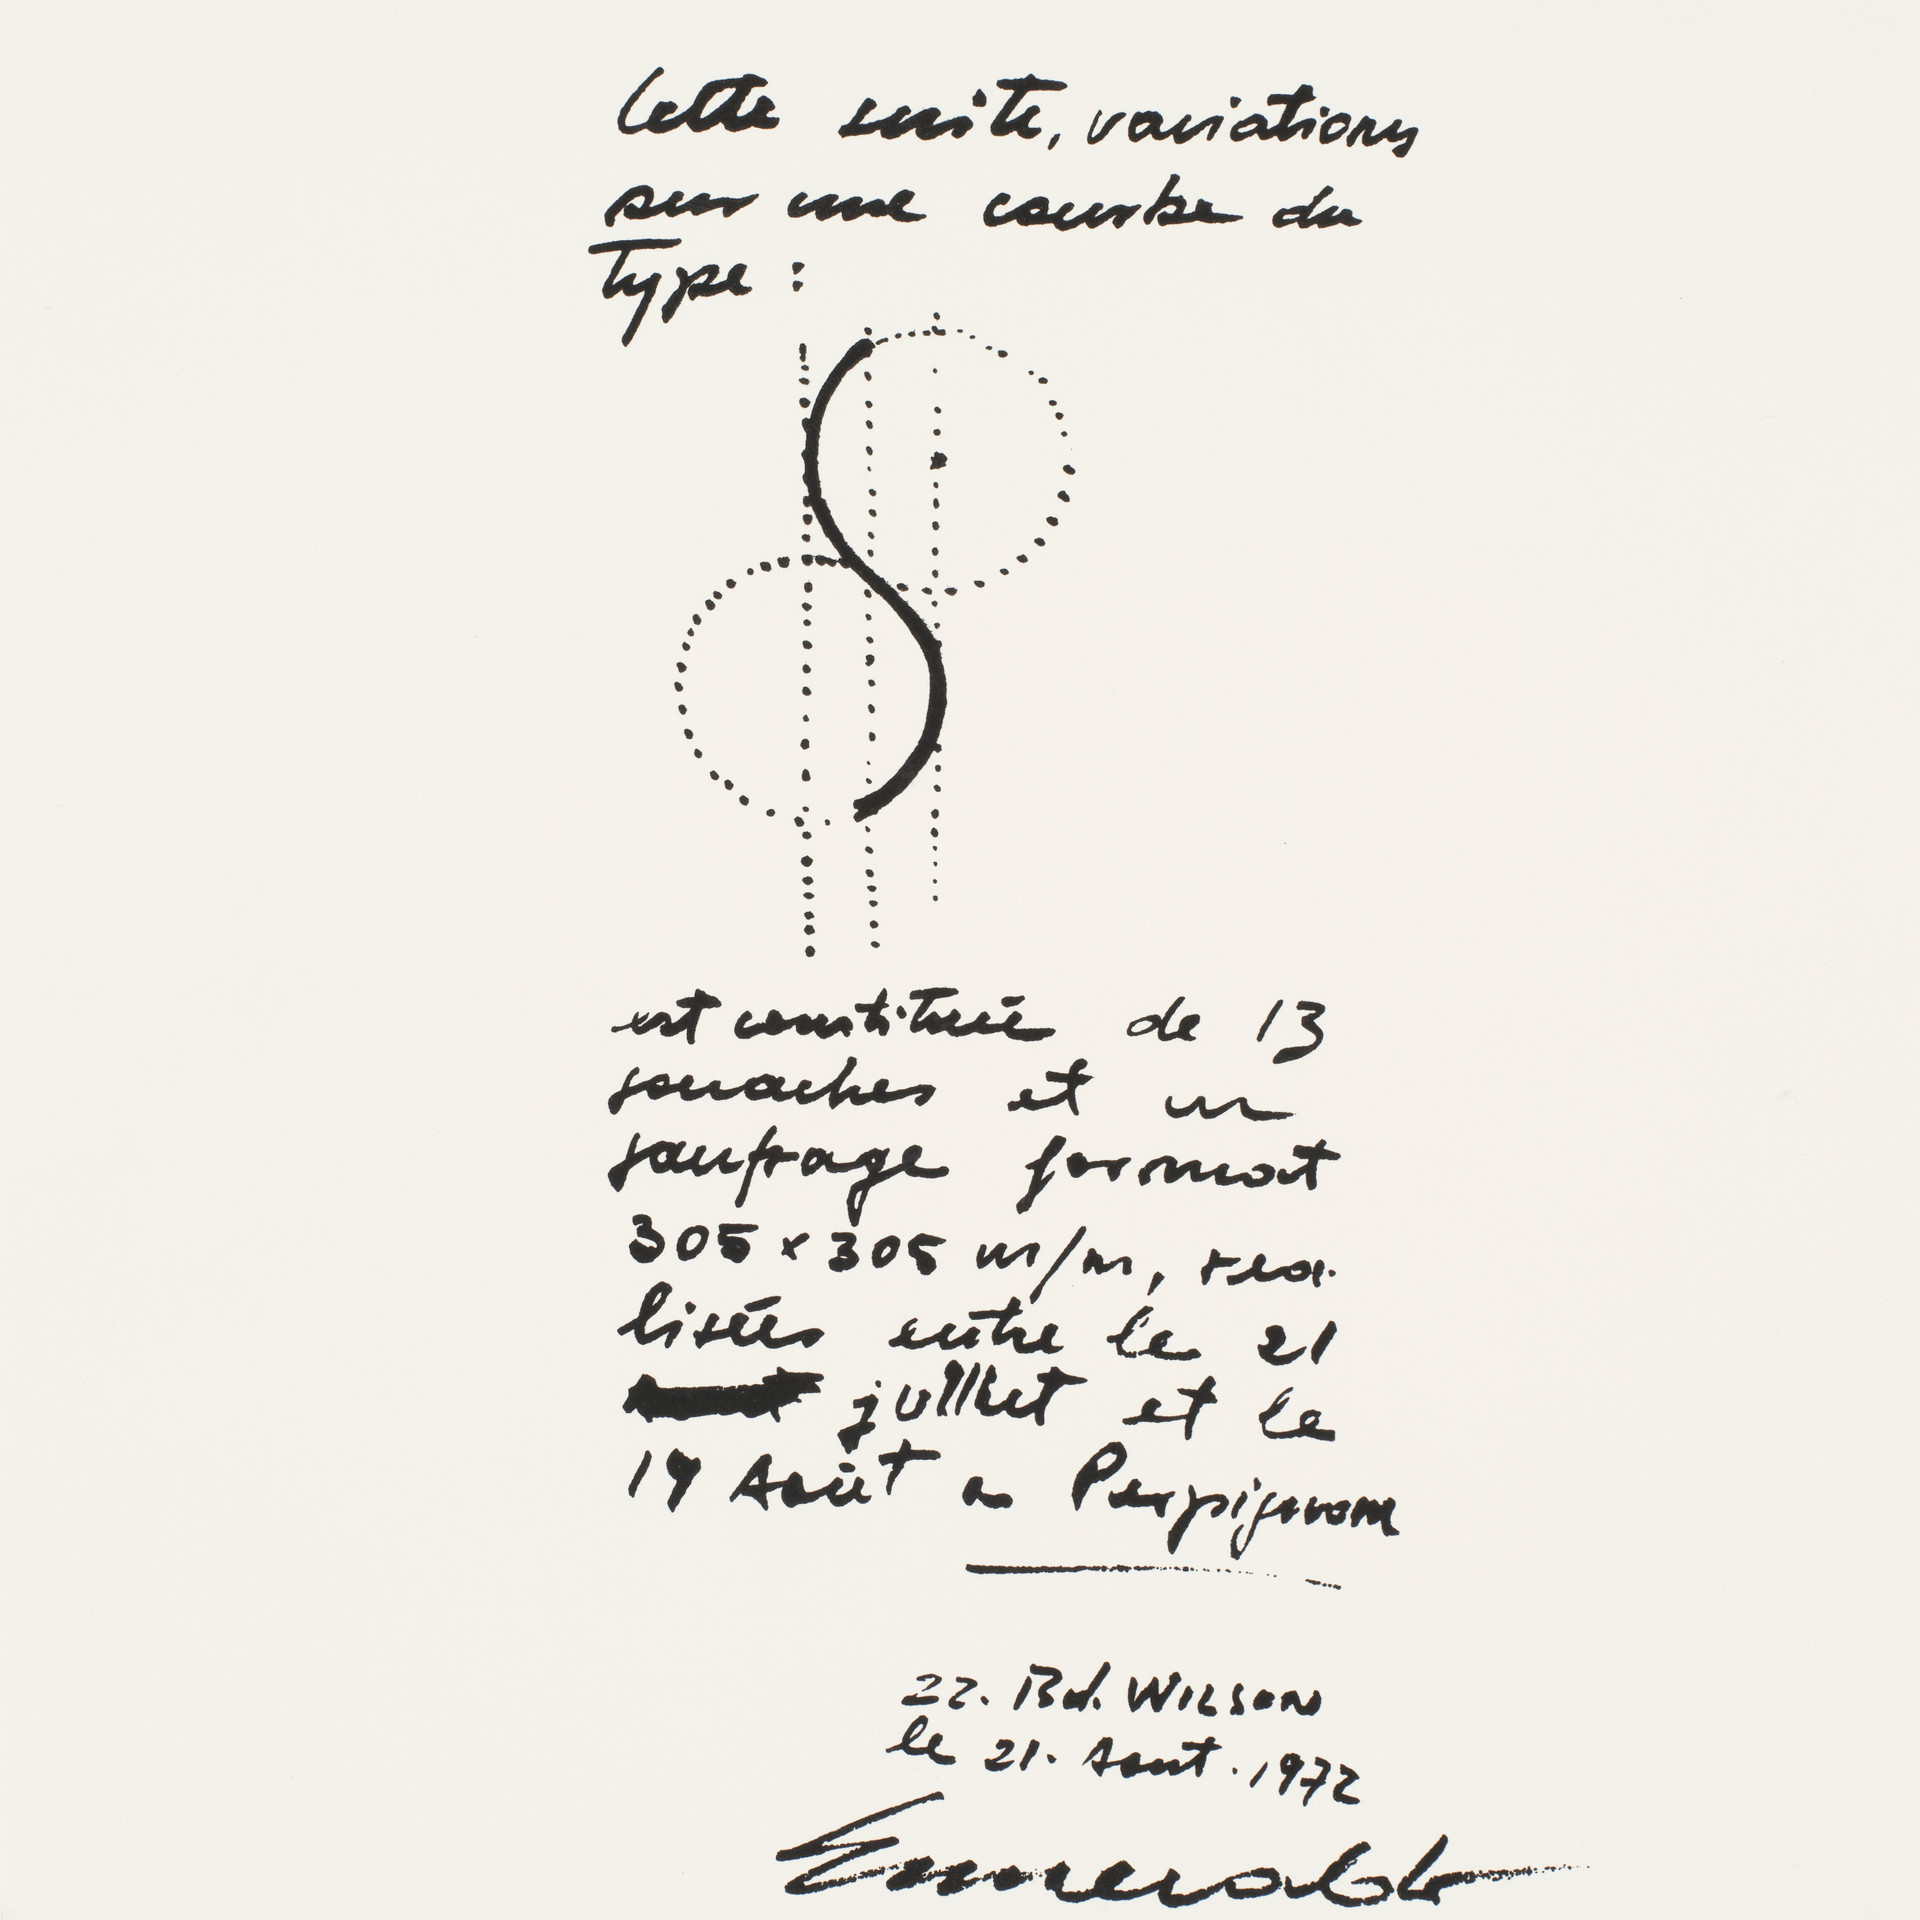 Cette suite, variations
sur une courbe du
Type :
est constituée de 13
gouaches et un
gaufrage format
305 x 305 m/m, rea-
lisées entre le 21
juillet et le
19 Août a Perpignan
22. Bd. WILSON
le 21. Aout. 1972